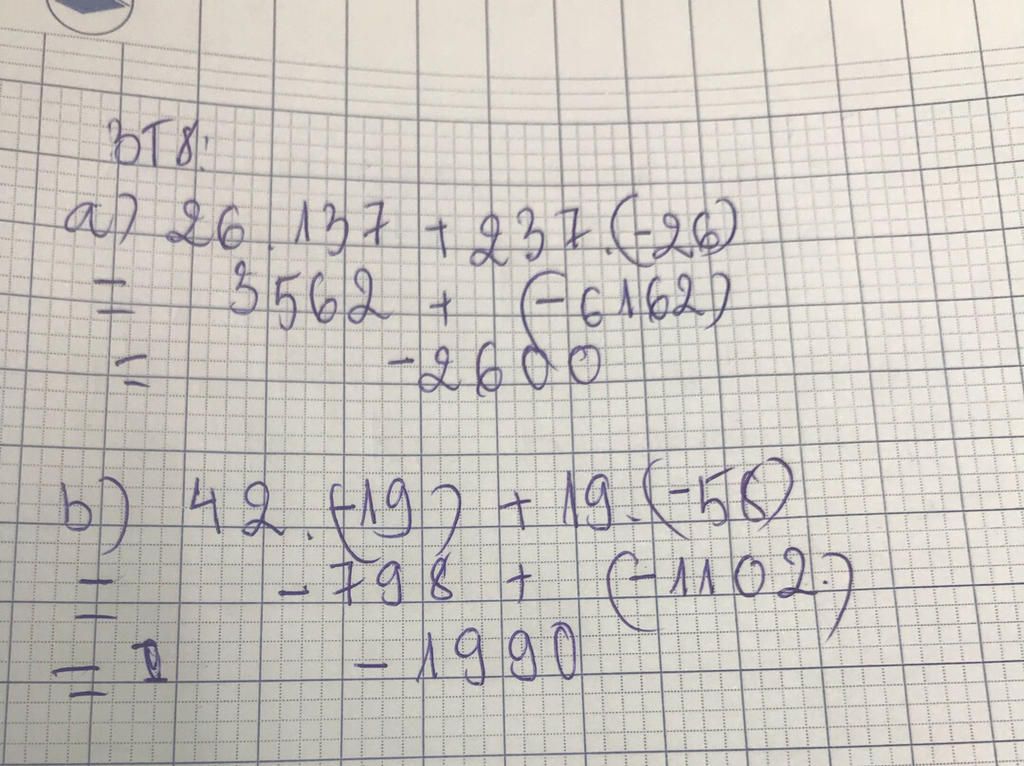 BT8:
a) 26.137 + 237.(-26)
= 3562 + (-6162)
= -2600
b) 42.(-19) + 19.(-58)
= -798 + (-1102)
= -1990